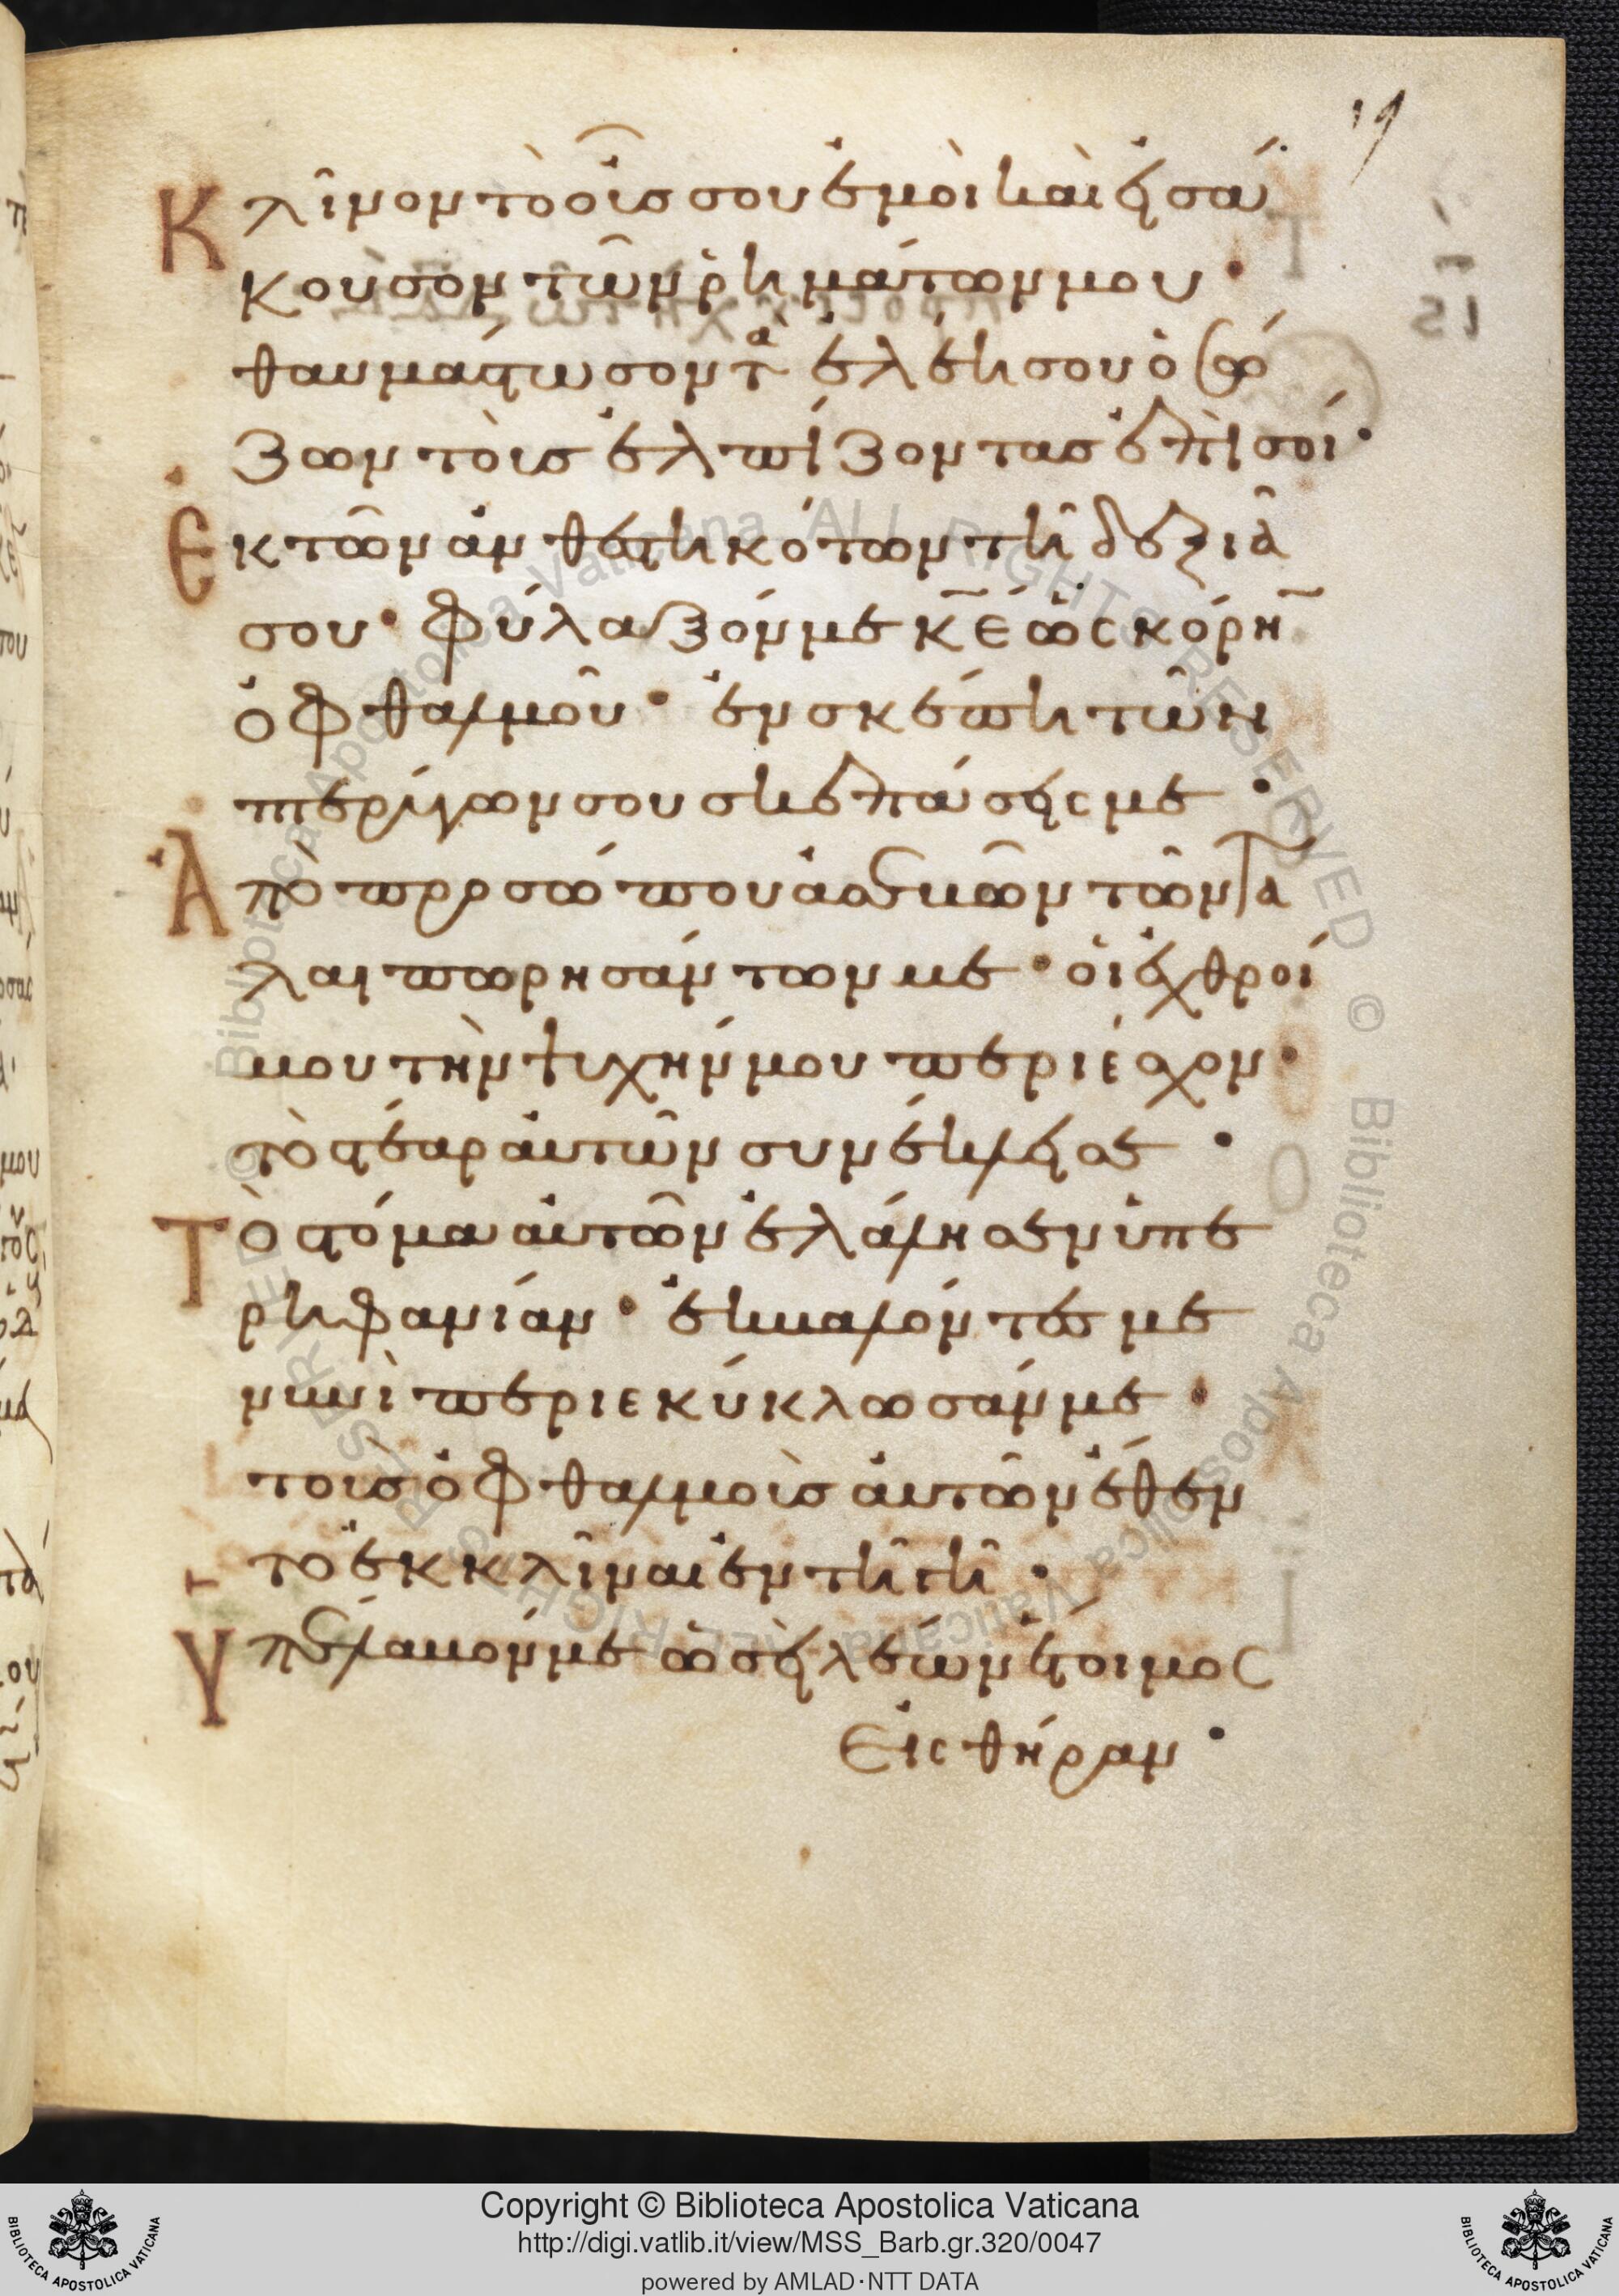 19
Κλῖνον τὸ οὖς σου ἐμοὶ καὶ εἰσά
κουσον τῶν ῥημάτων μου·
θαυμάστωσον τὰ ἐλέη σου ὁ σώ
ζων τοὺς ἐλπίζοντας ἐπὶ σοί·
Ἐκ τῶν ἀνθεστηκότων τῆ δεξιᾶ
σου· φύλαξόν με κ̅ε̅ ὡς κόρην
ὀφθαλμοῦ· ἐν σκέπη τῶν
πτερύγων σου σκεπάσεις με·
Ἀπὸ προσώπου ἀσεβῶν τῶν τα
λαιπωρησάντων με· οἱ ἐχθροί
μου τὴν ψυχήν μου περιέσχον·
τὸ στέαρ αὐτῶν συνέκλεισαν·
Τὸ στόμα αὐτῶν ἐλάλησεν ὑπε
ρηφανίαν· ἐκβαλόντες με
νυνὶ περιεκύκλωσάν με·
τοὺς ὀφθαλμοὺς αὐτῶν ἔθεν
το ἐκκλῖναι ἐν τῆ γῆ·
Ὑπέλαβόν με ὡσεὶ λέων ἕτοιμος
εἰς θήραν·
Copyright © Biblioteca Apostolica Vaticana
http://digi.vatlib.it/view/MSS_Barb.gr.320/0047
powered by AMLAD·NTT DATA
BIBLIOTECA APOSTOLICA VATICANA
BIBLIOTECA APOSTOLICA VATICANA